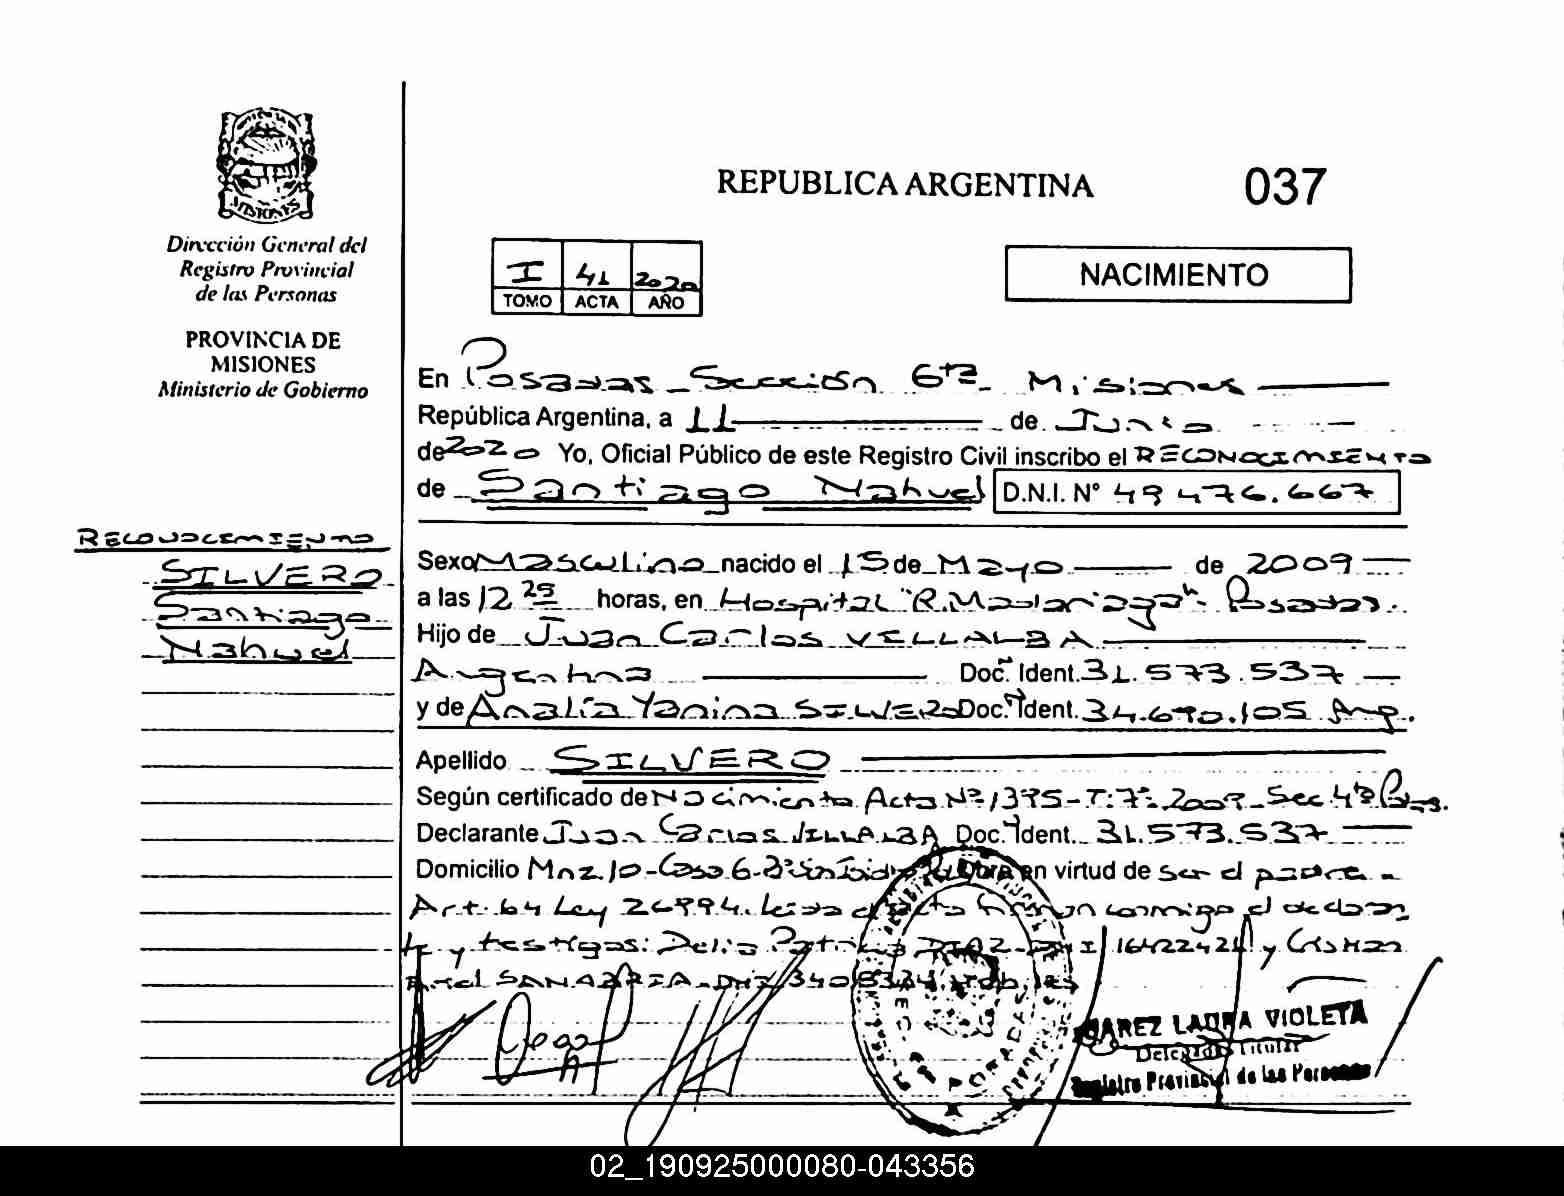 REPUBLICA ARGENTINA
037
MISIONES
Dirección General del
Registro Provincial
de las Personas
PROVINCIA DE
MISIONES
Ministerio de Gobierno
I 41 2020
TOMO ACTA AÑO
NACIMIENTO
En Posadas - Sección 6ta - Misiones
República Argentina, a 11 de Junio
de 2020 Yo, Oficial Público de este Registro Civil inscribo el RECONOCIMIENTO
de Santiago Nahuel D.N.I. N° 49 476.667
RECONOCIMIENTO
SILVERO
Santiago
Nahuel
Sexo Masculino nacido el 15 de Mayo de 2009
a las 12 29 horas, en Hospital "R. Madariaga" - Posadas.
Hijo de Juan Carlos VILLALBA
Argentina Doc. Ident. 31.573.537
y de Analía Yanina SILVERO Doc. Ident. 34.690.105 Arg.
Apellido SILVERO
Según certificado de Nacimiento Acta Nº 1395-T.7º-2009-Sec. 4ta
Declarante Juan Carlos VILLALBA Doc. Ident. 31.573.537
Domicilio Mnz. 10-Casa 6- Obra en virtud de ser el padre -
Art. 64 Ley 26994. Leída el acta firman conmigo el declaran
te y testigos: Delia Patricia DIAZ - DNI 16422421 y Cristian
Axel SANABRIA - DNI
JUAREZ LAURA VIOLETA
Delegada Titular
Registro Provincial de las Personas
POSADAS
02_190925000080-043356